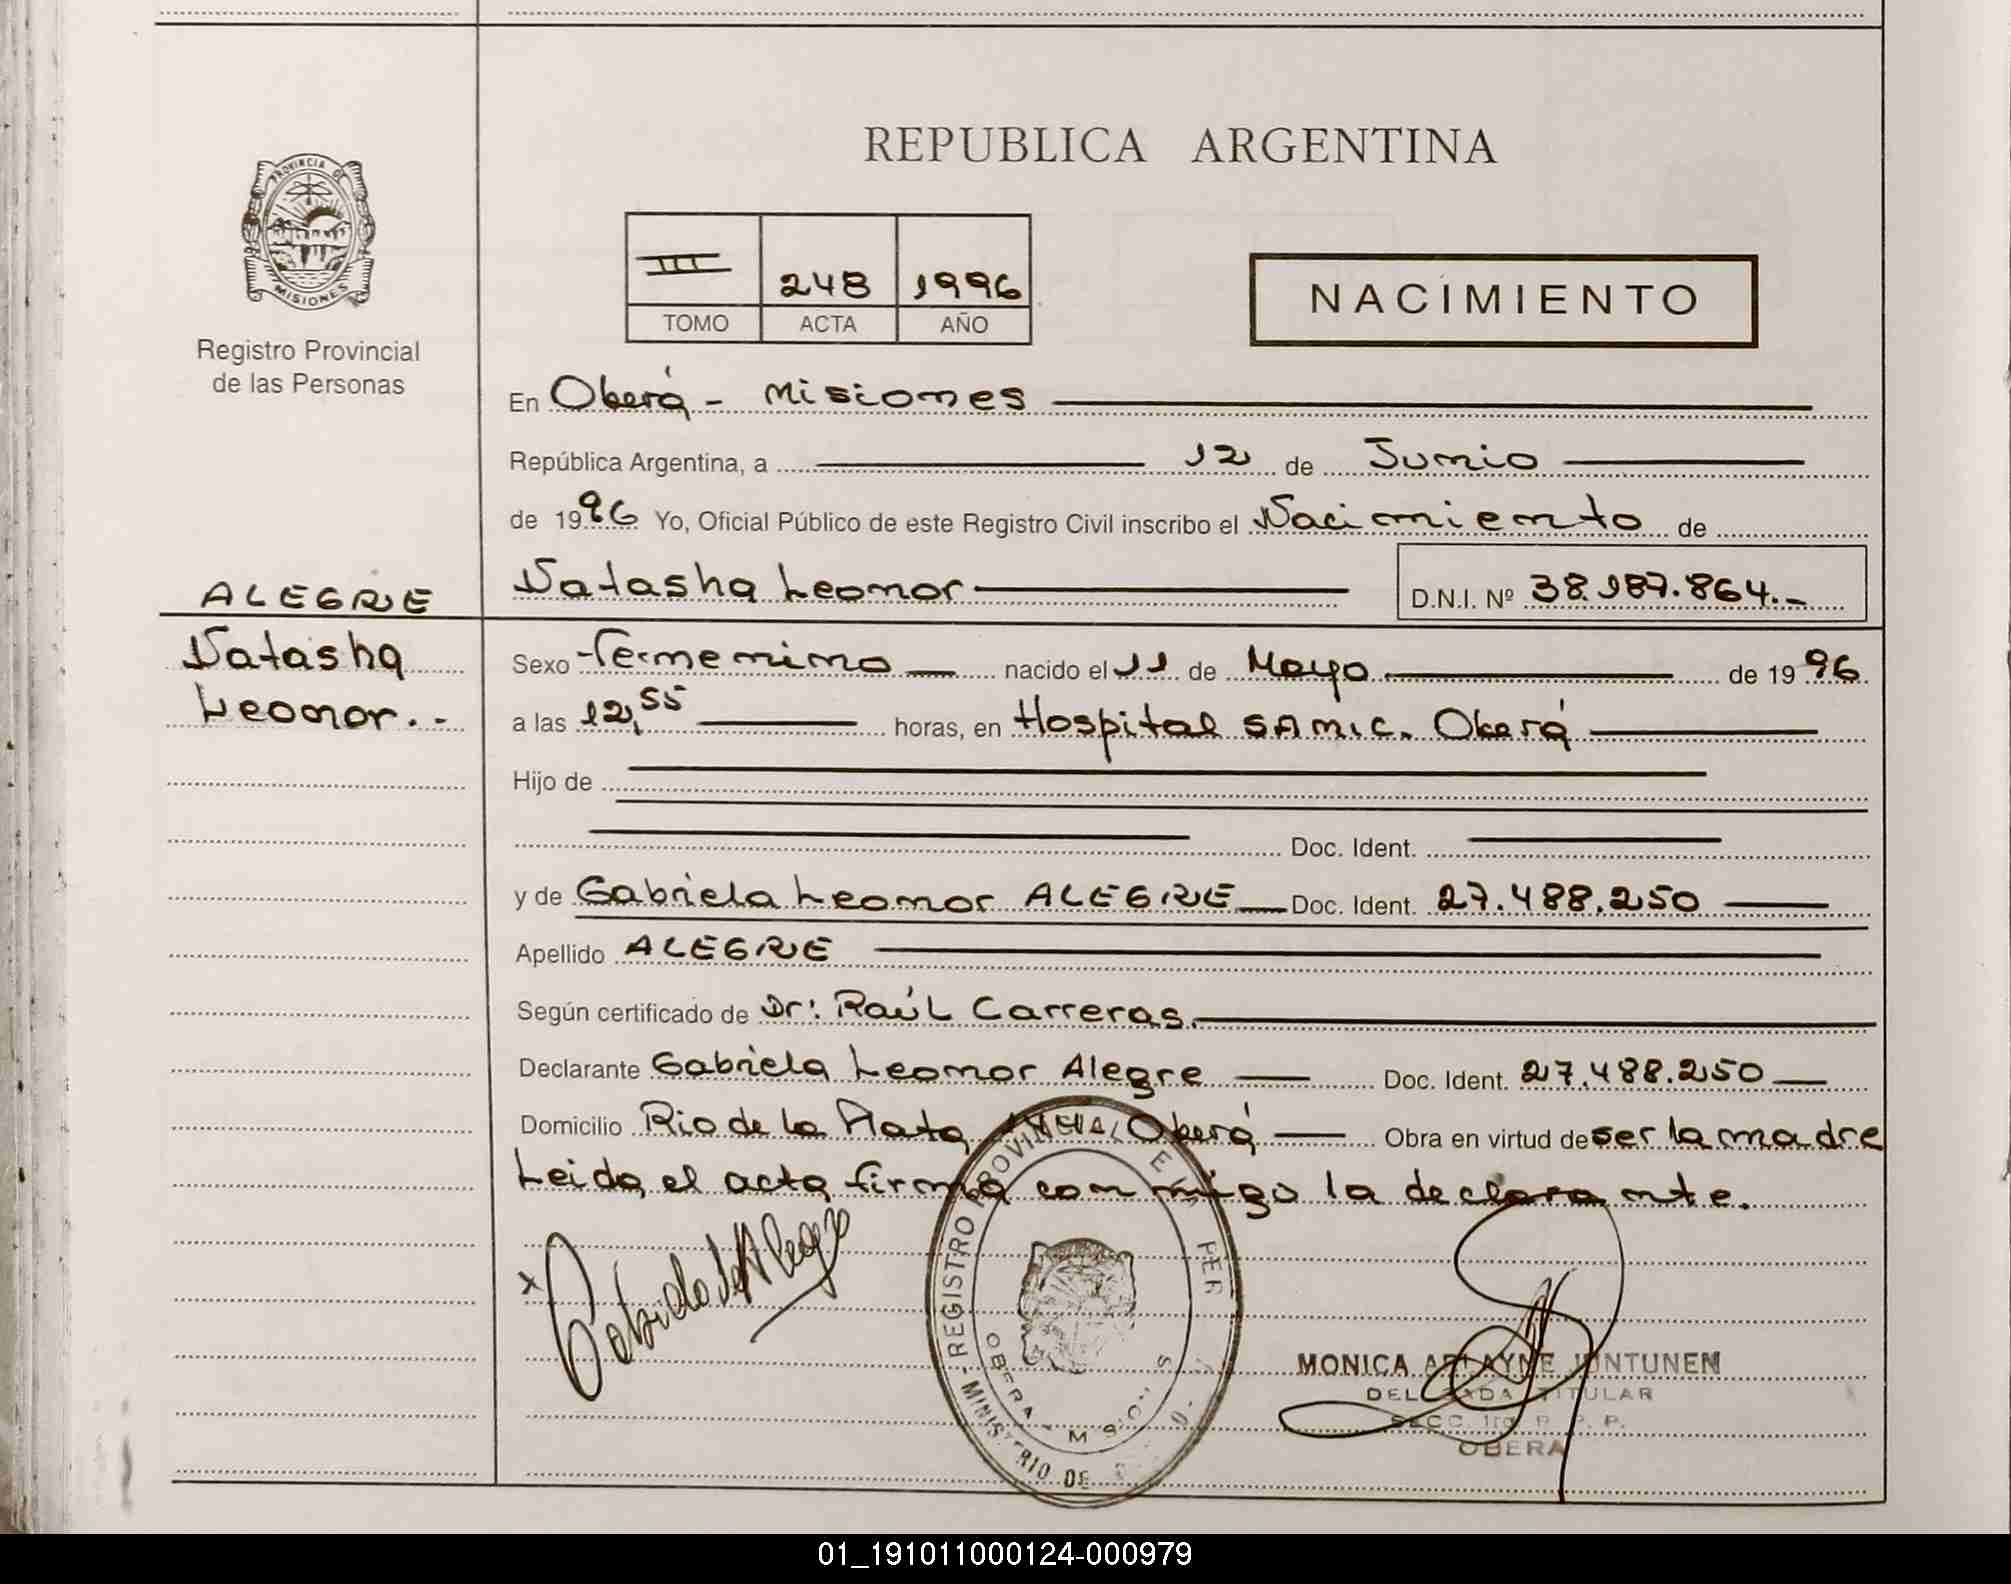 REPUBLICA ARGENTINA
PROVINCIA DE
MISIONES
Registro Provincial
de las Personas
III 248 1996
TOMO ACTA AÑO
NACIMIENTO
En Oberá - Misiones
República Argentina, a 12 de Junio
de 1996 Yo, Oficial Público de este Registro Civil inscribo el Nacimiento de
ALEGRE
Natasha
Leonor.-
Natasha Leonor D.N.I. Nº 38.187.864.-
Sexo Femenino nacido el 11 de Mayo de 1996
a las 12,55 horas, en Hospital SAMIC. Oberá
Hijo de
Doc. Ident.
y de Gabriela Leonor ALEGRE Doc. Ident. 27.488.250
Apellido ALEGRE
Según certificado de Dr: Raúl Carreras.
Declarante Gabriela Leonor Alegre Doc. Ident. 27.488.250
Domicilio Rio de la Plata Oberá Obra en virtud de ser la madre
Leida el acta firma con migo la declarante.
REGISTRO PROVINCIAL DE
MINISTERIO DE
OBERA
MONICA JUNTUNEN
TITULAR
OBERA
01_191011000124-000979